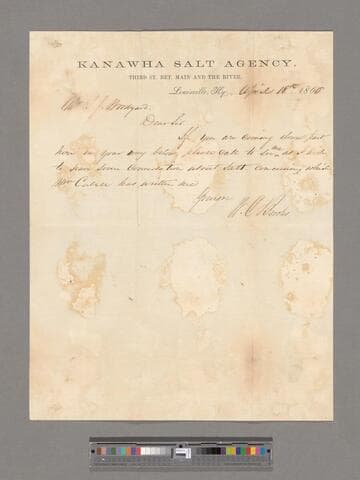 KANAWHA SALT AGENCY,
THIRD ST. BET. MAIN AND THE RIVER.
Louisville, Ky., April 18th 1860
Woodyard
Dear Sir
If you are coming down
how in your way being please call to see me as I wish
to have some conversation about Salt concerning which
Mr has written me
Yours
W. C. Brooks